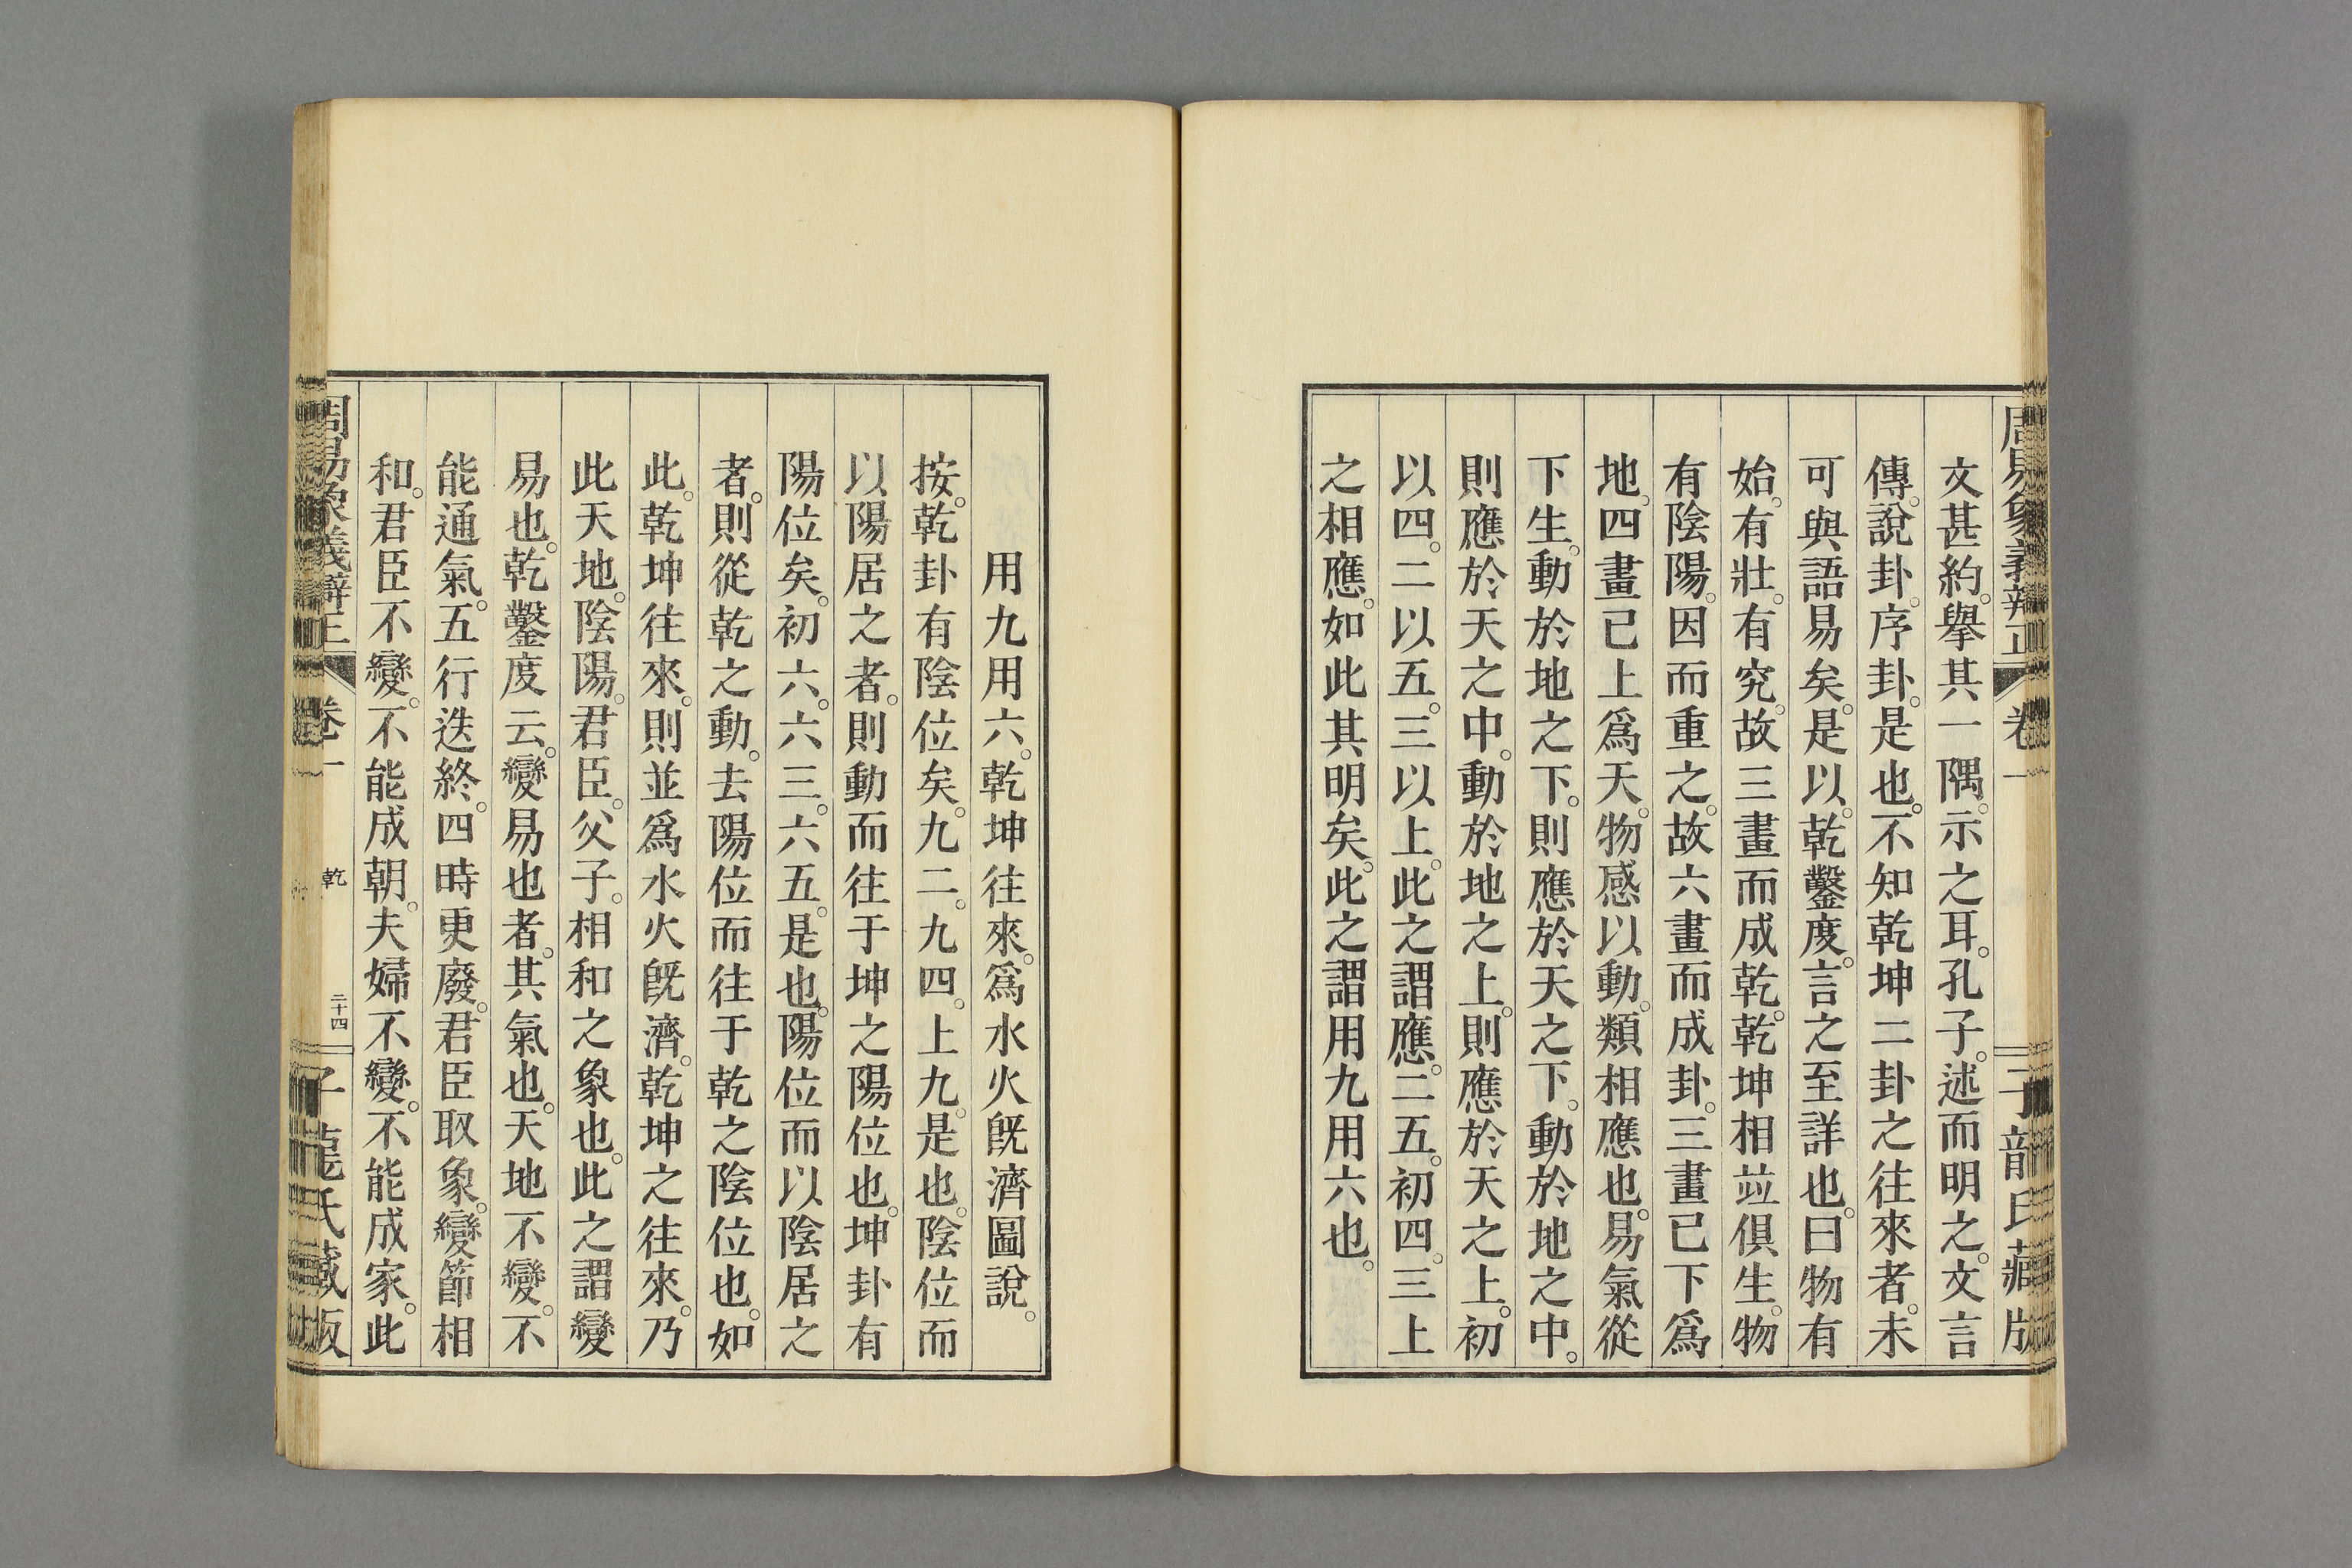 周易象義辨正 卷一 子龍氏藏版
文甚約。舉其一隅。示之耳。孔子。述而明之。文言
傳。說卦。序卦。是也。不知乾坤二卦之往來者。未
可與語易矣。是以。乾鑿度。言之至詳也。曰物有
始。有壯。有究。故三畫而成乾。乾坤相竝俱生。物
有陰陽。因而重之。故六畫而成卦。三畫已下爲
地。四畫已上爲天。物感以動。類相應也。易氣從
下生。動於地之下。則應於天之下。動於地之中。
則應於天之中。動於地之上。則應於天之上。初
以四。二以五。三以上。此之謂應。二五。初四。三上
之相應。如此其明矣。此之謂用九用六也。
用九用六。乾坤往來。爲水火旣濟圖說。
按。乾卦有陰位矣。九二。九四。上九。是也。陰位而
以陽居之者。則動而往于坤之陽位也。坤卦有
陽位矣。初六。六三。六五。是也。陽位而以陰居之
者。則從乾之動。去陽位而往于乾之陰位也。如
此。乾坤往來。則並爲水火旣濟。乾坤之往來。乃
此天地。陰陽。君臣。父子。相和之象也。此之謂變
易也。乾鑿度云。變易也者。其氣也。天地不變。不
能通氣。五行迭終。四時更廢。君臣取象。變節相
和。君臣不變。不能成朝。夫婦不變。不能成家。此
周易象義辨正 卷一 乾 二十四 子龍氏藏版